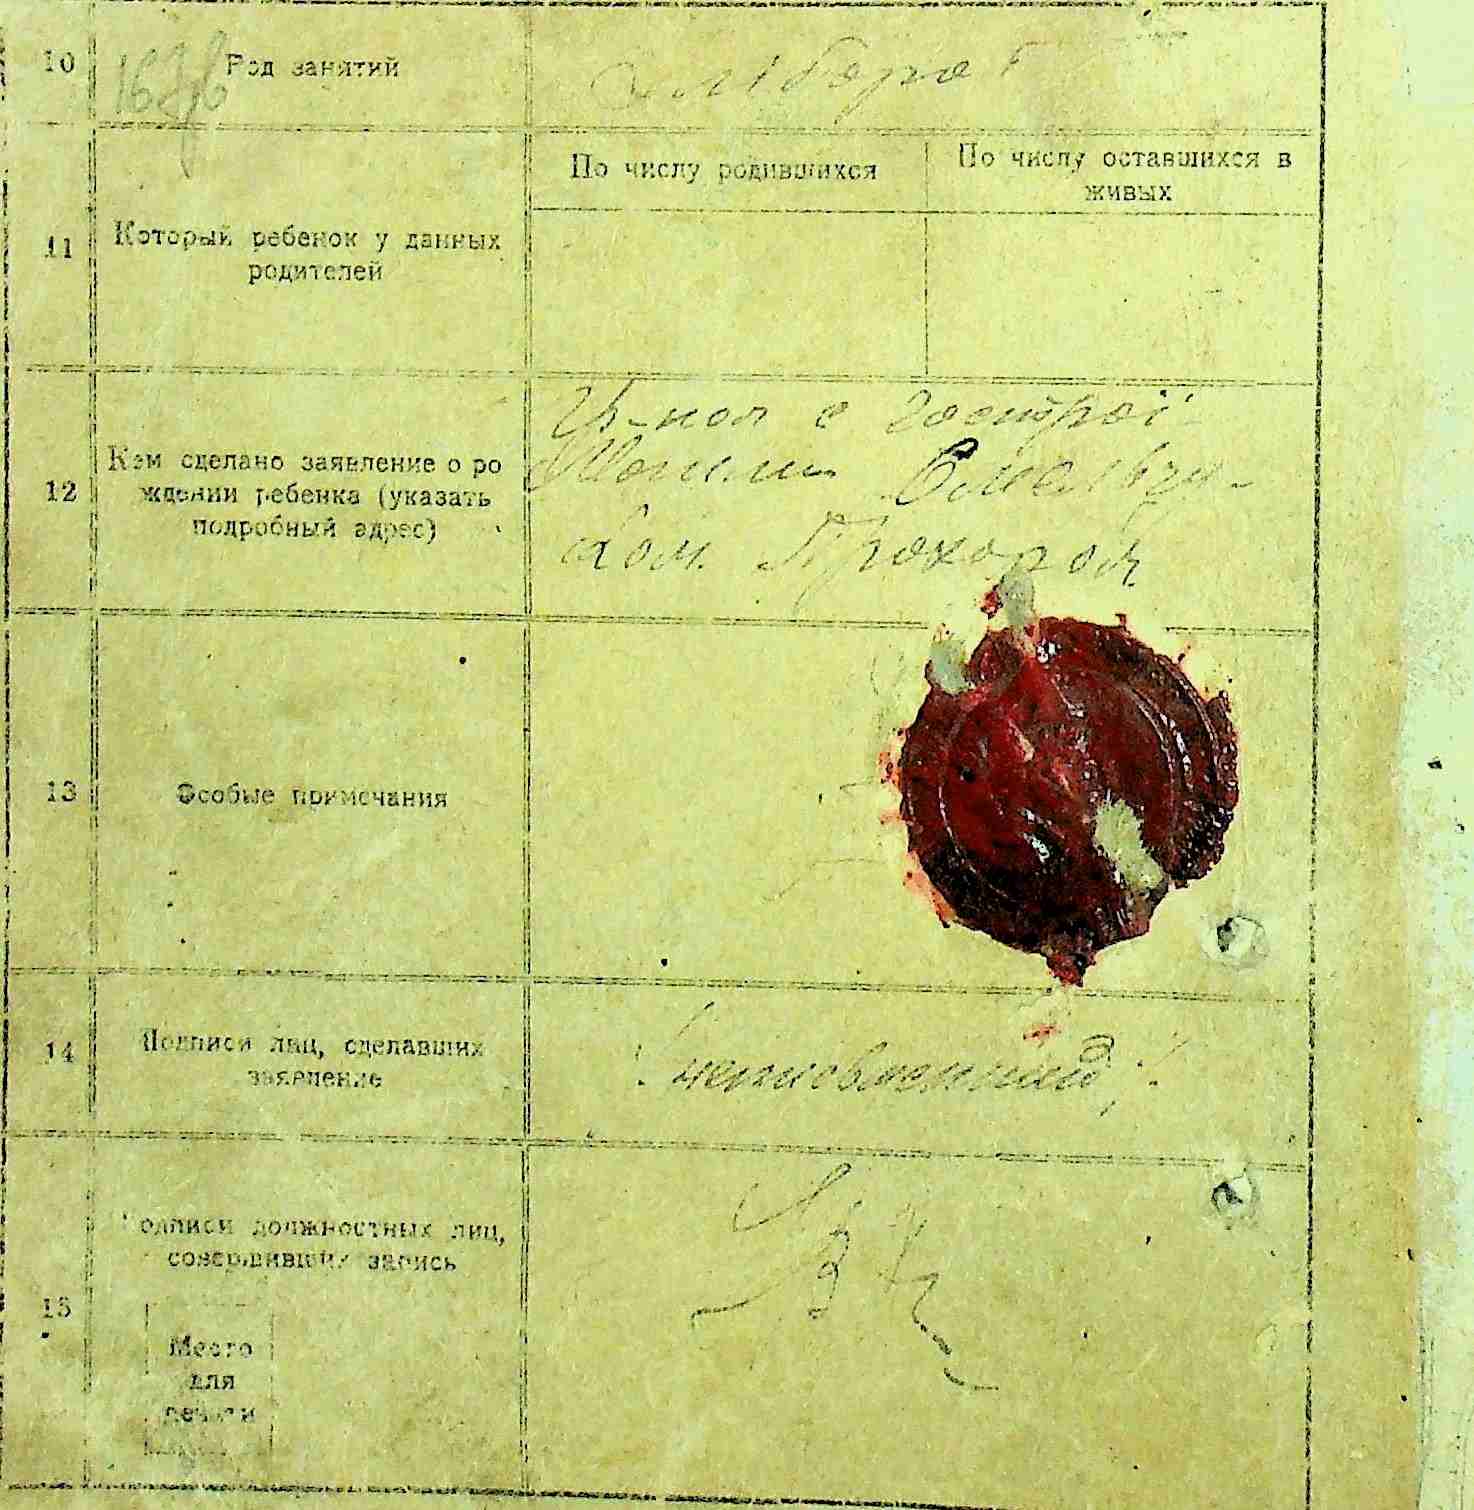 10 Род занятий хлібороб
11 Который ребенок у данных
родителей
По числу родившихся
По числу оставшихся в
живых
12 Кем сделано заявление о ро
ждении ребенка (указать
подробный адрес)
Гр-ном с Гострої
Могили Омельчу-
ком Прохором
13 Особые примечания
14 Подписи лиц, сделавших
заявление
15 Подписи должностных лиц,
совершивших запись
Место
для
печати